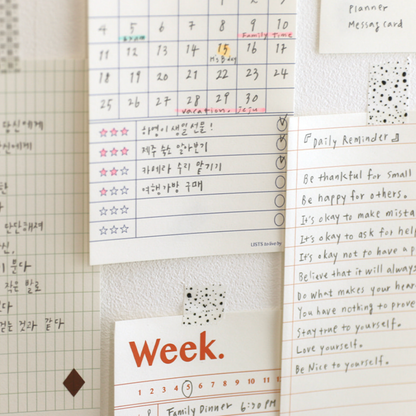 Planner
Messag card
1 2 3
4 5 6 7 8 9 10
EXAM
Family Time
11 12 13 14 15 16 17
M's Bday
18 19 20 21 22 23 24
25 26 27 28 29 30
vacation. Jeju
하영이 생일 선물!
제주 숙소 알아보기
카메라 수리 맡기기
여행가방 구매
LISTS to live by
당신에게
안에게
단단해져
당신.
기 묻다
작은 말로
걷는 것과 같다
Daily Reminder
Be thankful for small
Be happy for others.
It's okay to make mista
It's okay to ask for help
It's okay not to have a p
Believe that it will always
Do what makes your hear
You have nothing to prove
Stay true to yourself.
Love yourself.
Be Nice to yourself.
Week.
1 2 3 4 5 6 7 8 9 10 11
Family Dinner 6:30 PM